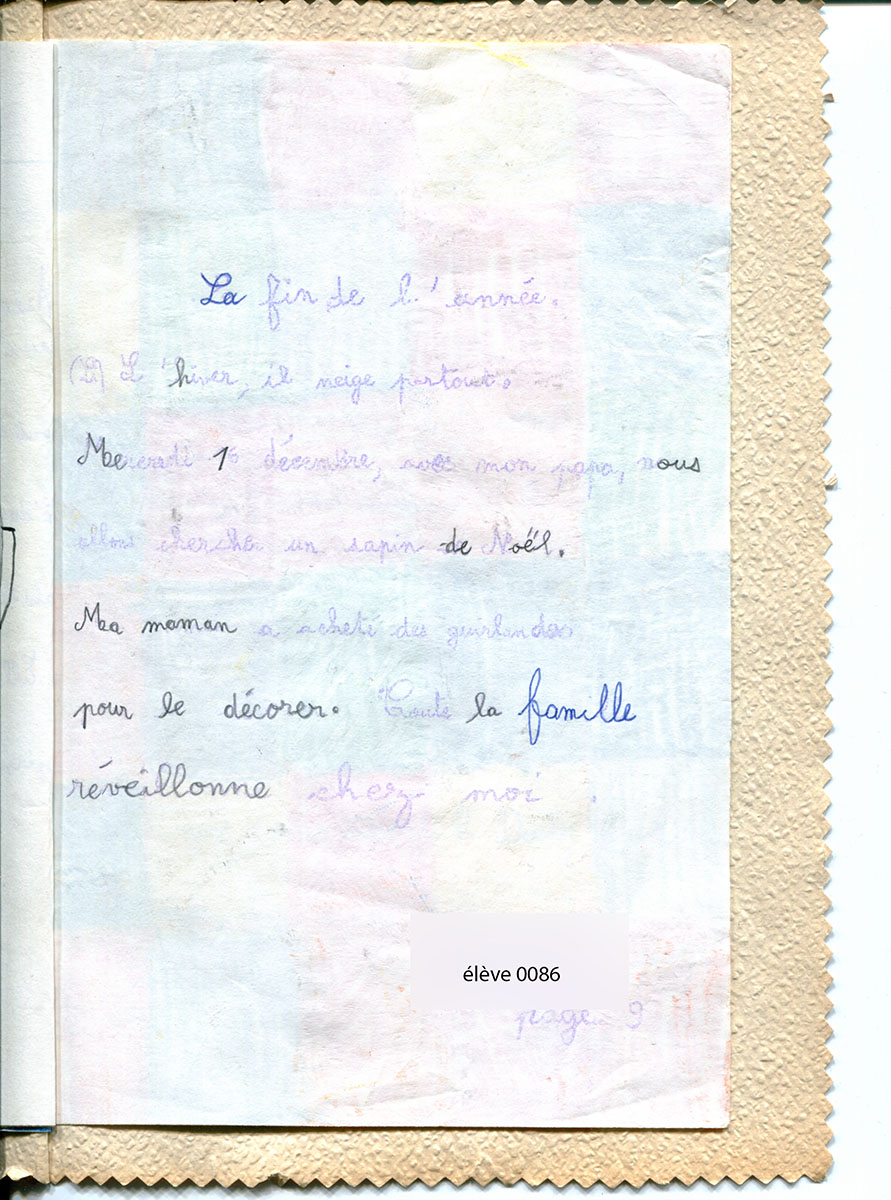 La fin de l'année.
L'hiver, il neige partout.
Mercredi 16 décembre, avec mon papa, nous
allons chercher un sapin de Noël.
Ma maman a acheté des guirlandes
pour le décorer. Toute la famille
réveillonne chez moi.
élève 0086
page 9